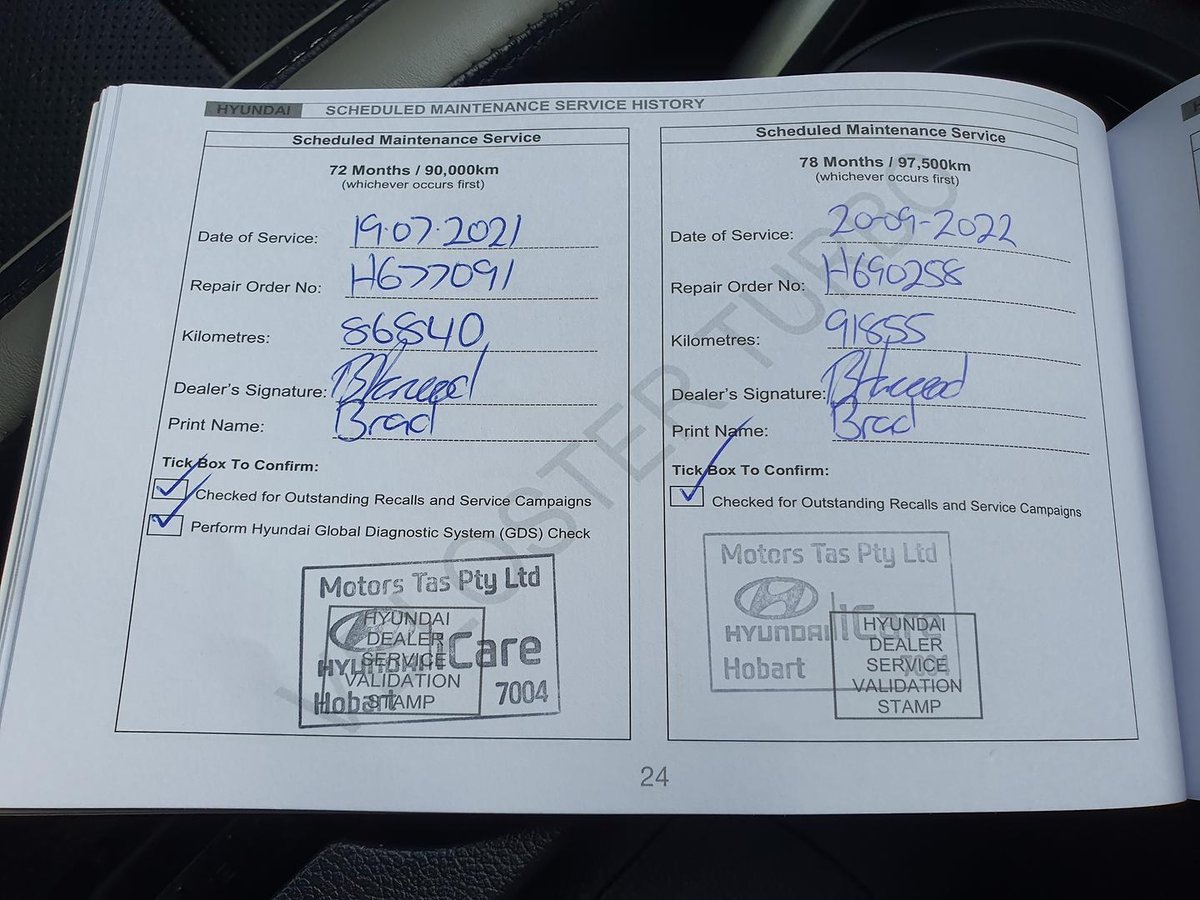 HYUNDAI SCHEDULED MAINTENANCE SERVICE HISTORY
Scheduled Maintenance Service
72 Months / 90,000km
(whichever occurs first)
Date of Service: 19.07.2021
Repair Order No: H677091
Kilometres: 86840
Dealer's Signature:
Print Name: Brad
Tick Box To Confirm:
Checked for Outstanding Recalls and Service Campaigns
Perform Hyundai Global Diagnostic System (GDS) Check
Motors Tas Pty Ltd
HYUNDAI iCare
Hobart 7004
HYUNDAI
DEALER
SERVICE
VALIDATION
STAMP
Scheduled Maintenance Service
78 Months / 97,500km
(whichever occurs first)
Date of Service: 20-09-2022
Repair Order No: H690258
Kilometres: 91855
Dealer's Signature:
Print Name: Brad
Tick Box To Confirm:
Checked for Outstanding Recalls and Service Campaigns
Motors Tas Pty Ltd
HYUNDAI iCare
Hobart 7004
HYUNDAI
DEALER
SERVICE
VALIDATION
STAMP
VELOSTER TURBO
24